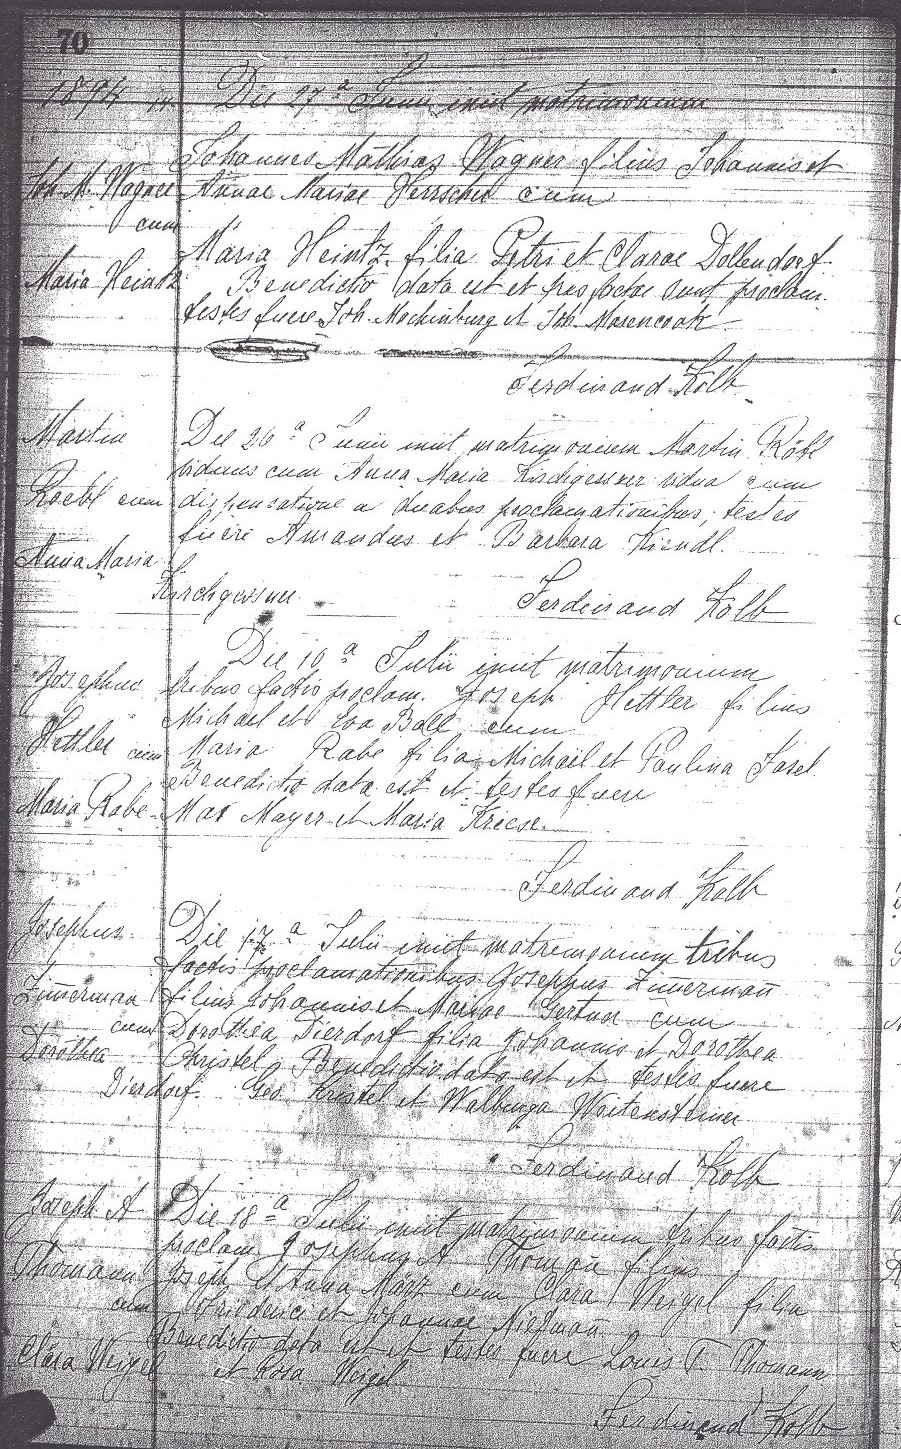 70
1894
Die 27ª Junii iniit matrimonium
Johannes Mathias Wagner filius Johannis et
Joh. M. Wagner
Annae Mariae Herrscher cum
cum
Maria Heintz filia Petri et Clarae Dollendorf
Maria Heintz
Benedictio data est et tres factae sunt proclam.
testes fuere Joh. Mechinburg et Joh. Masencook
Ferdinand Kolb
Martin
Die 26ª Junii iniit matrimonium Martin Röbl
viduus cum Anna Maria Kirchgessner vidua cum
Roebl cum
dispensatione a duabus proclamationibus, testes
fuere Amandus et Barbara Kiendl.
Anna Maria
Kirchgessner
Ferdinand Kolb
Die 10ª Julii iniit matrimonium
Josephus
tribus factis proclam. Joseph Hettler filius
Michael et Eva Ball cum
Hettler cum
Maria Rabe filia Michael et Paulina Fasel
Benedictio data est et testes fuere
Maria Rabe
Max Mayer et Maria Kriese.
Ferdinand Kolb
Josephus
Die 17ª Julii iniit matrimonium tribus
factis proclamationibus Josephus Zimerman
Zimerman
filius Johannis et Mariae Gertner cum
cum
Dorothea Dierdorf filia Johannis et Dorothea
Dorothea
Christel, Benedictio data est et testes fuere
Dierdorf.
Geo. Kristel et Walburga Wortensteiner
Ferdinand Kolb
Joseph A
Die 18ª Julii iniit matrimonium tribus factis
proclam. Josephus A Thoman filius
Thomann
Joseph et Anna März cum Clara Weigel filia
cum
Friderici et Johannae Nießmann
Benedictio data est et testes fuere Louis T. Thomann
Clara Weigel
et Rosa Weigel
Ferdinand Kolb